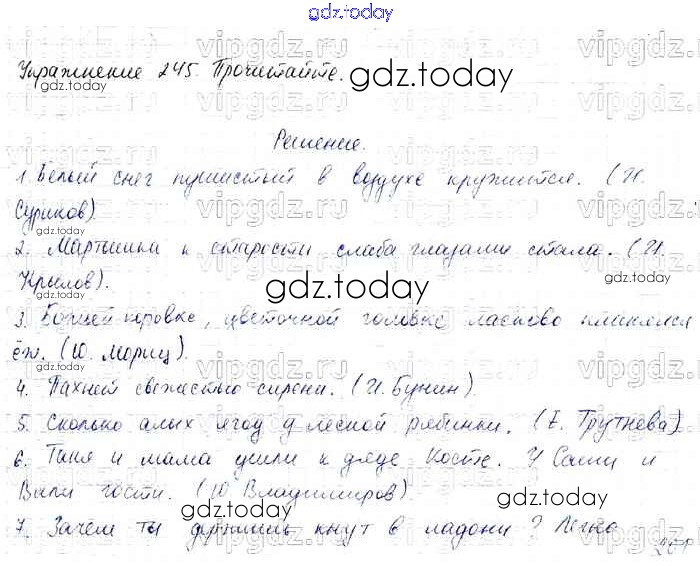 gdz.today
Упражнение 245. Прочитайте.
gdz.today
Решение.
1. Белый снег пушистый в воздухе кружится. (И.
Суриков).
2. Мартышка к старости слаба глазами стала. (И.
Крылов).
gdz.today
3. Божьей коровке, цветочной головке ласково кланялся
ёж. (Ю. Мориц).
4. Пахнет свежестью сирени. (И. Бунин).
5. Сколько алых ягод у лесной рябинки. (Е. Трутнева)
6. Таня и мама шли к дяде Косте. У Саши и
Вали гости. (Ю. Владимиров).
gdz.today
7. Зачем ты держишь кнут в ладони? Легко